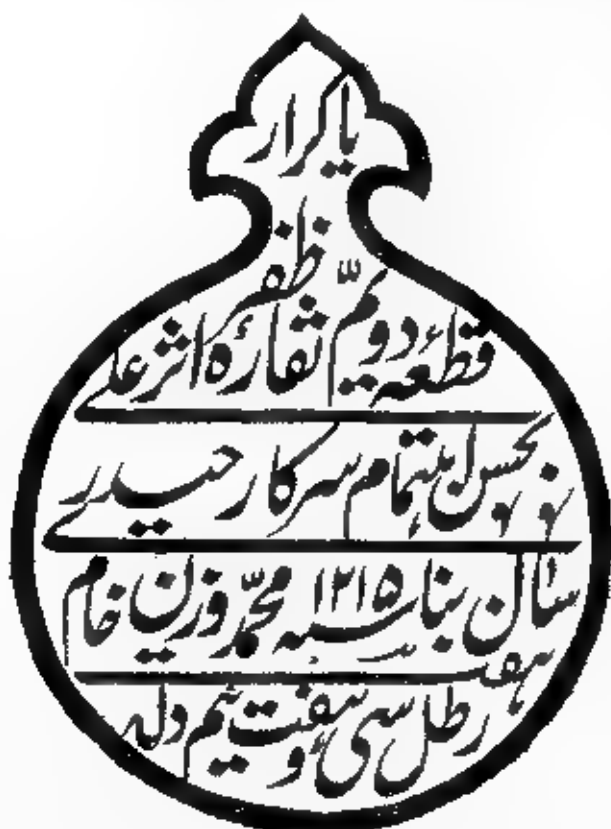 یا کرار
ظفر
قطعهٔ دویم نقارهٔ اثر علی
بحسن اہتمام سرکار حیدری
سال بنا ۱۲۱۵ سنہ محمد وزن خام
ہفت
رطل سی و ہفت نیم دلہ